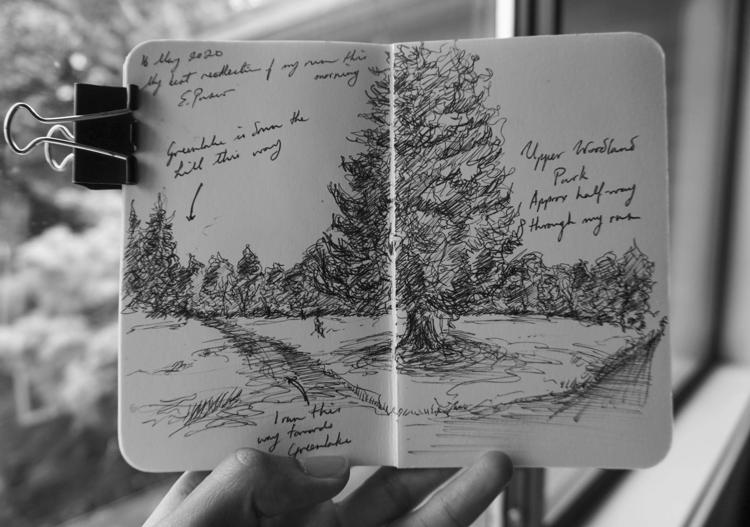 18 May 2020
My best recollection of my run this
morning
Greenlake is down the
hill this way
Upper Woodland
Park
Approx half-way
through my run
I ran this
way towards
Greenlake